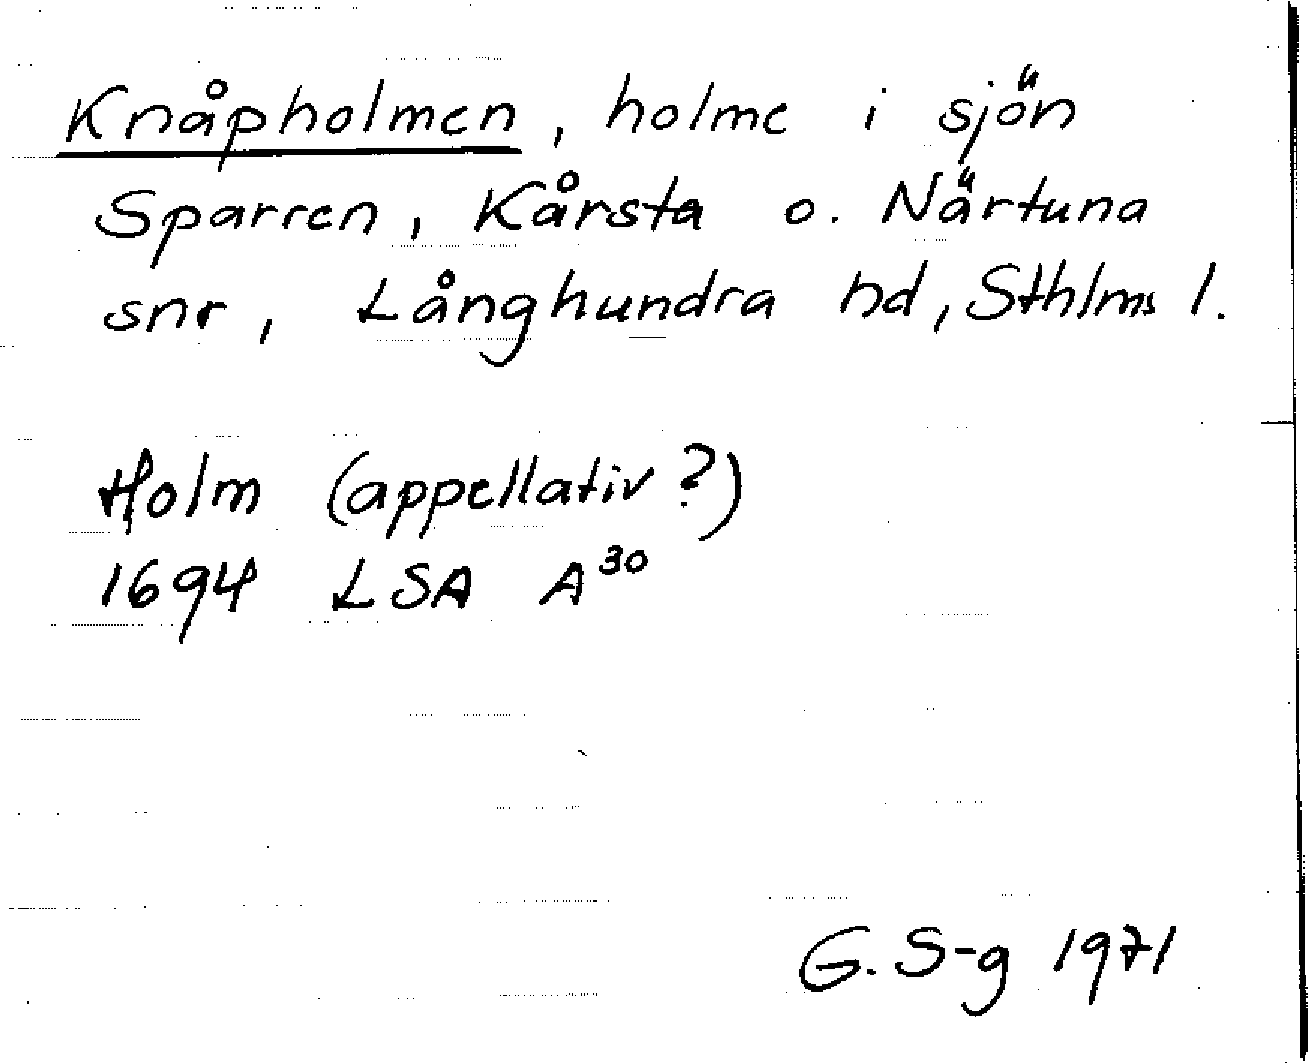 Knåpholmen, holme i sjön
Sparren, Kårsta o. Närtuna
snr, Långhundra hd, Sthlms l.
Holm (appellativ?)
1694 LSA A³⁰
G. S-g 1971